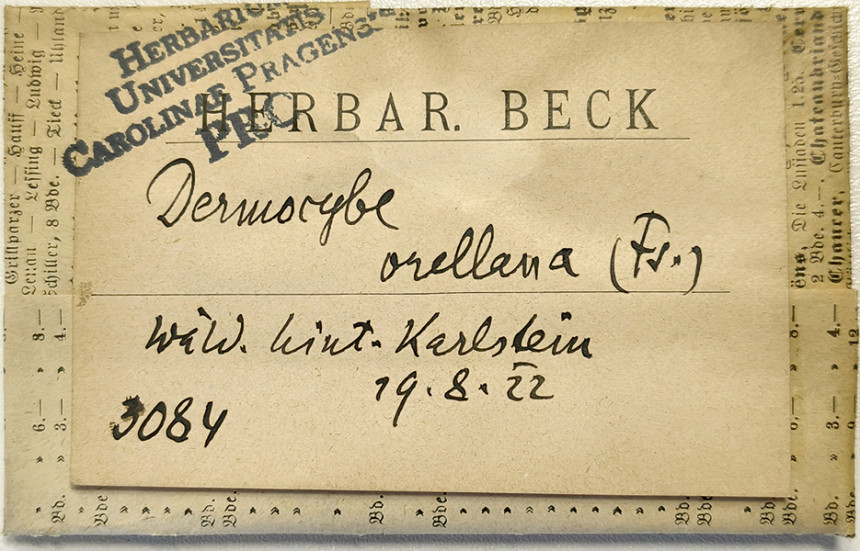 HERBARIUM
UNIVERSITATIS
CAROLINAE PRAGENSIS
PRC
HERBAR. BECK
Dermocybe
orellana (Fr.)
Wäld. hint. Karlstein
19. 8. 22
3084
Grillparzer — Hauff — Heine —
Lenau — Lessing — Ludwig —
Schiller, 8 Bde. — Tieck — Uhland
Die Lusiaden 1.25.
2 Bde. 4.—. Chateaubriand
Chaucer, Canterbury-Geschich
» 6.— » 8.—
» 3.— » 4.—
Bd. Bde Bd. Bde. Bd. Bde. Bd. Bde.